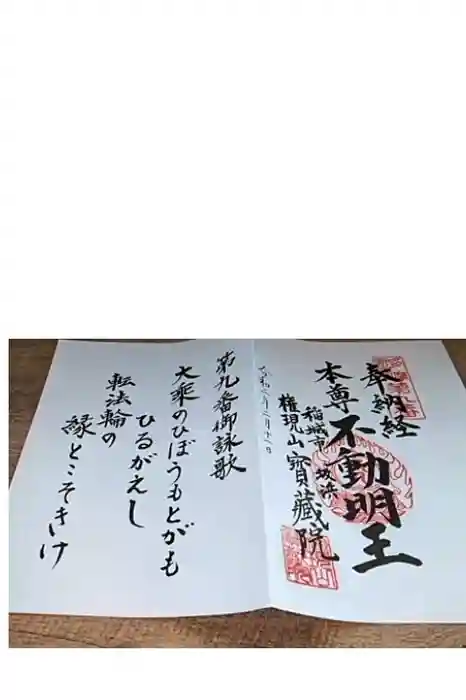 奉納経
本尊 不動明王
稲城市 坂浜
権現山 寳蔵院
第九番御詠歌
大乘のひぼうもとがも
ひるがえし
転法輪の
縁とこそきけ